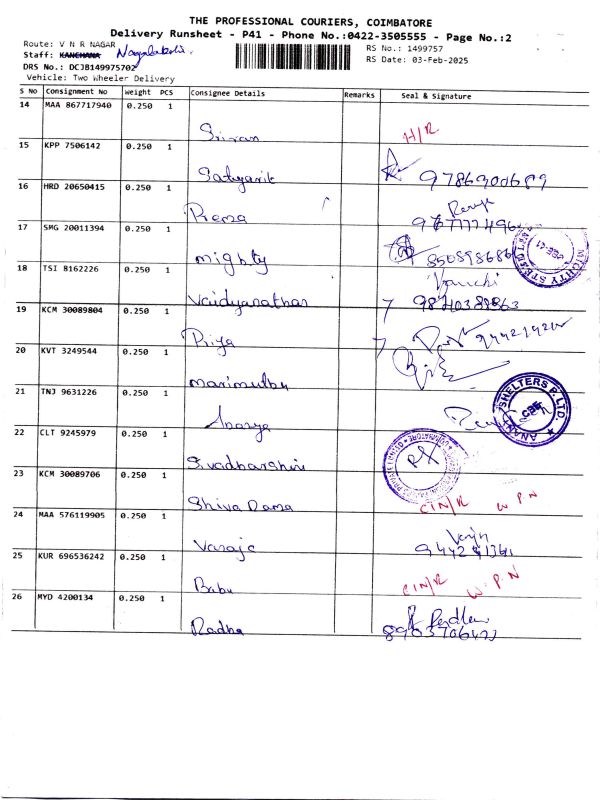 THE PROFESSIONAL COURIERS, COIMBATORE
Delivery Runsheet - P41 - Phone No.:0422-3505555 - Page No.:2
Route: V N R NAGAR
RS No.: 1499757
Staff: KANCHANA Nagalakshmi
RS Date: 03-Feb-2025
DRS No.: DCJB149975702
Vehicle: Two Wheeler Delivery
S No Consignment No Weight PCS Consignee Details Remarks Seal & Signature
14 MAA 867717940 0.250 1
Sriram H/R
15 KPP 7506142 0.250 1
Sathyarik 9786300689
16 HRD 20650415 0.250 1
Prema
17 SMG 20011394 0.250 1
mighty
18 TSI 8162226 0.250 1
Vaidyanathan
19 KCM 30089804 0.250 1
Priya
20 KVT 3249544 0.250 1
marimuthu
21 TNJ 9631226 0.250 1
SHELTERS P. LTD.
22 CLT 9245979 0.250 1
Sivadharshini
23 KCM 30089706 0.250 1
Shiva Rama C/N/R W P N
24 MAA 576119905 0.250 1
25 KUR 696536242 0.250 1
Babu C/N/R W P N
26 MYD 4200134 0.250 1
Radha